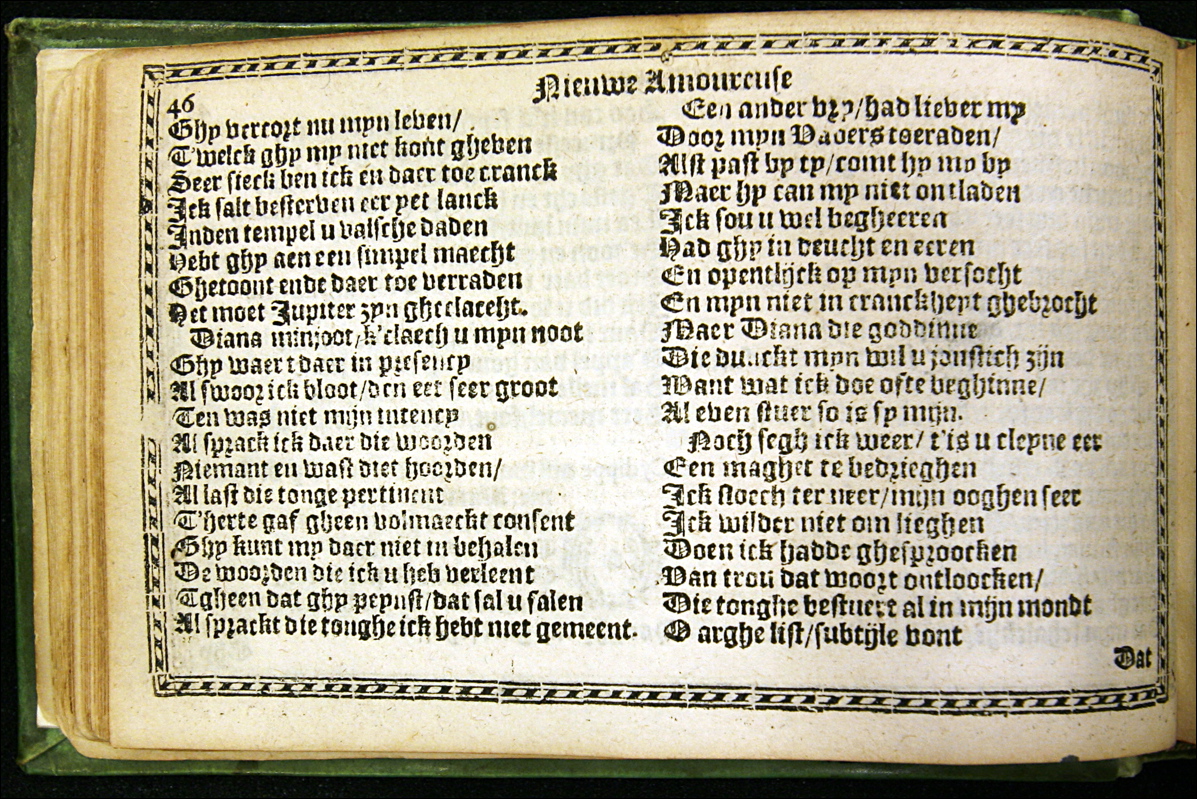 Nieuwe Amoureuse
46
Ghy vercort nu myn leven/
T'welck ghy my niet kont gheven
Seer sieck ben ick en daer toe cranck
Ick salt besterven eer yet lanck
Inden tempel u valsche daden
Hebt ghy aen een simpel maecht
Ghetoont ende daer toe verraden
Het moet Jupiter zyn gheclaecht.
Diana minjoot/k'claech u myn noot
Ghy waert daer in presency
Al swoor ick bloot/den eet seer groot
Ten was niet mijn intency
Al sprack ick daer die woorden
Niemant en wast diet hoorden/
Al last die tonge pertinent
T'herte gaf gheen volmaeckt consent
Ghy kunt my daer niet in behalen
De woorden die ick u heb verleent
Tgheen dat ghy peynst/dat sal u falen
Al sprackt die tonghe ick hebt niet gemeent.
Een ander vry/had liever my
Door myn Vaders toeraden/
Alst past by ty/comt hy my by
Maer hy can my niet ontladen
Ick sou u wel begheeren
Had ghy in deucht en eeren
En opentlijck op myn versocht
En myn niet in cranckheyt ghebrocht
Maer Diana die goddinne
Die dunckt myn wil u jonstich zijn
Want wat ick doe ofte beghinne/
Al even stuer so is sy mijn.
Noch segh ick weer/t'is u cleyne eer
Een maghet te bedrieghen
Ick sloech ter neer/mijn ooghen seer
Ick wilder niet om lieghen
Doen ick hadde ghesproocken
Van trou dat woort ontloocken/
Die tonghe bestuert al in mijn mondt
O arghe list/subtijle vont
Dat